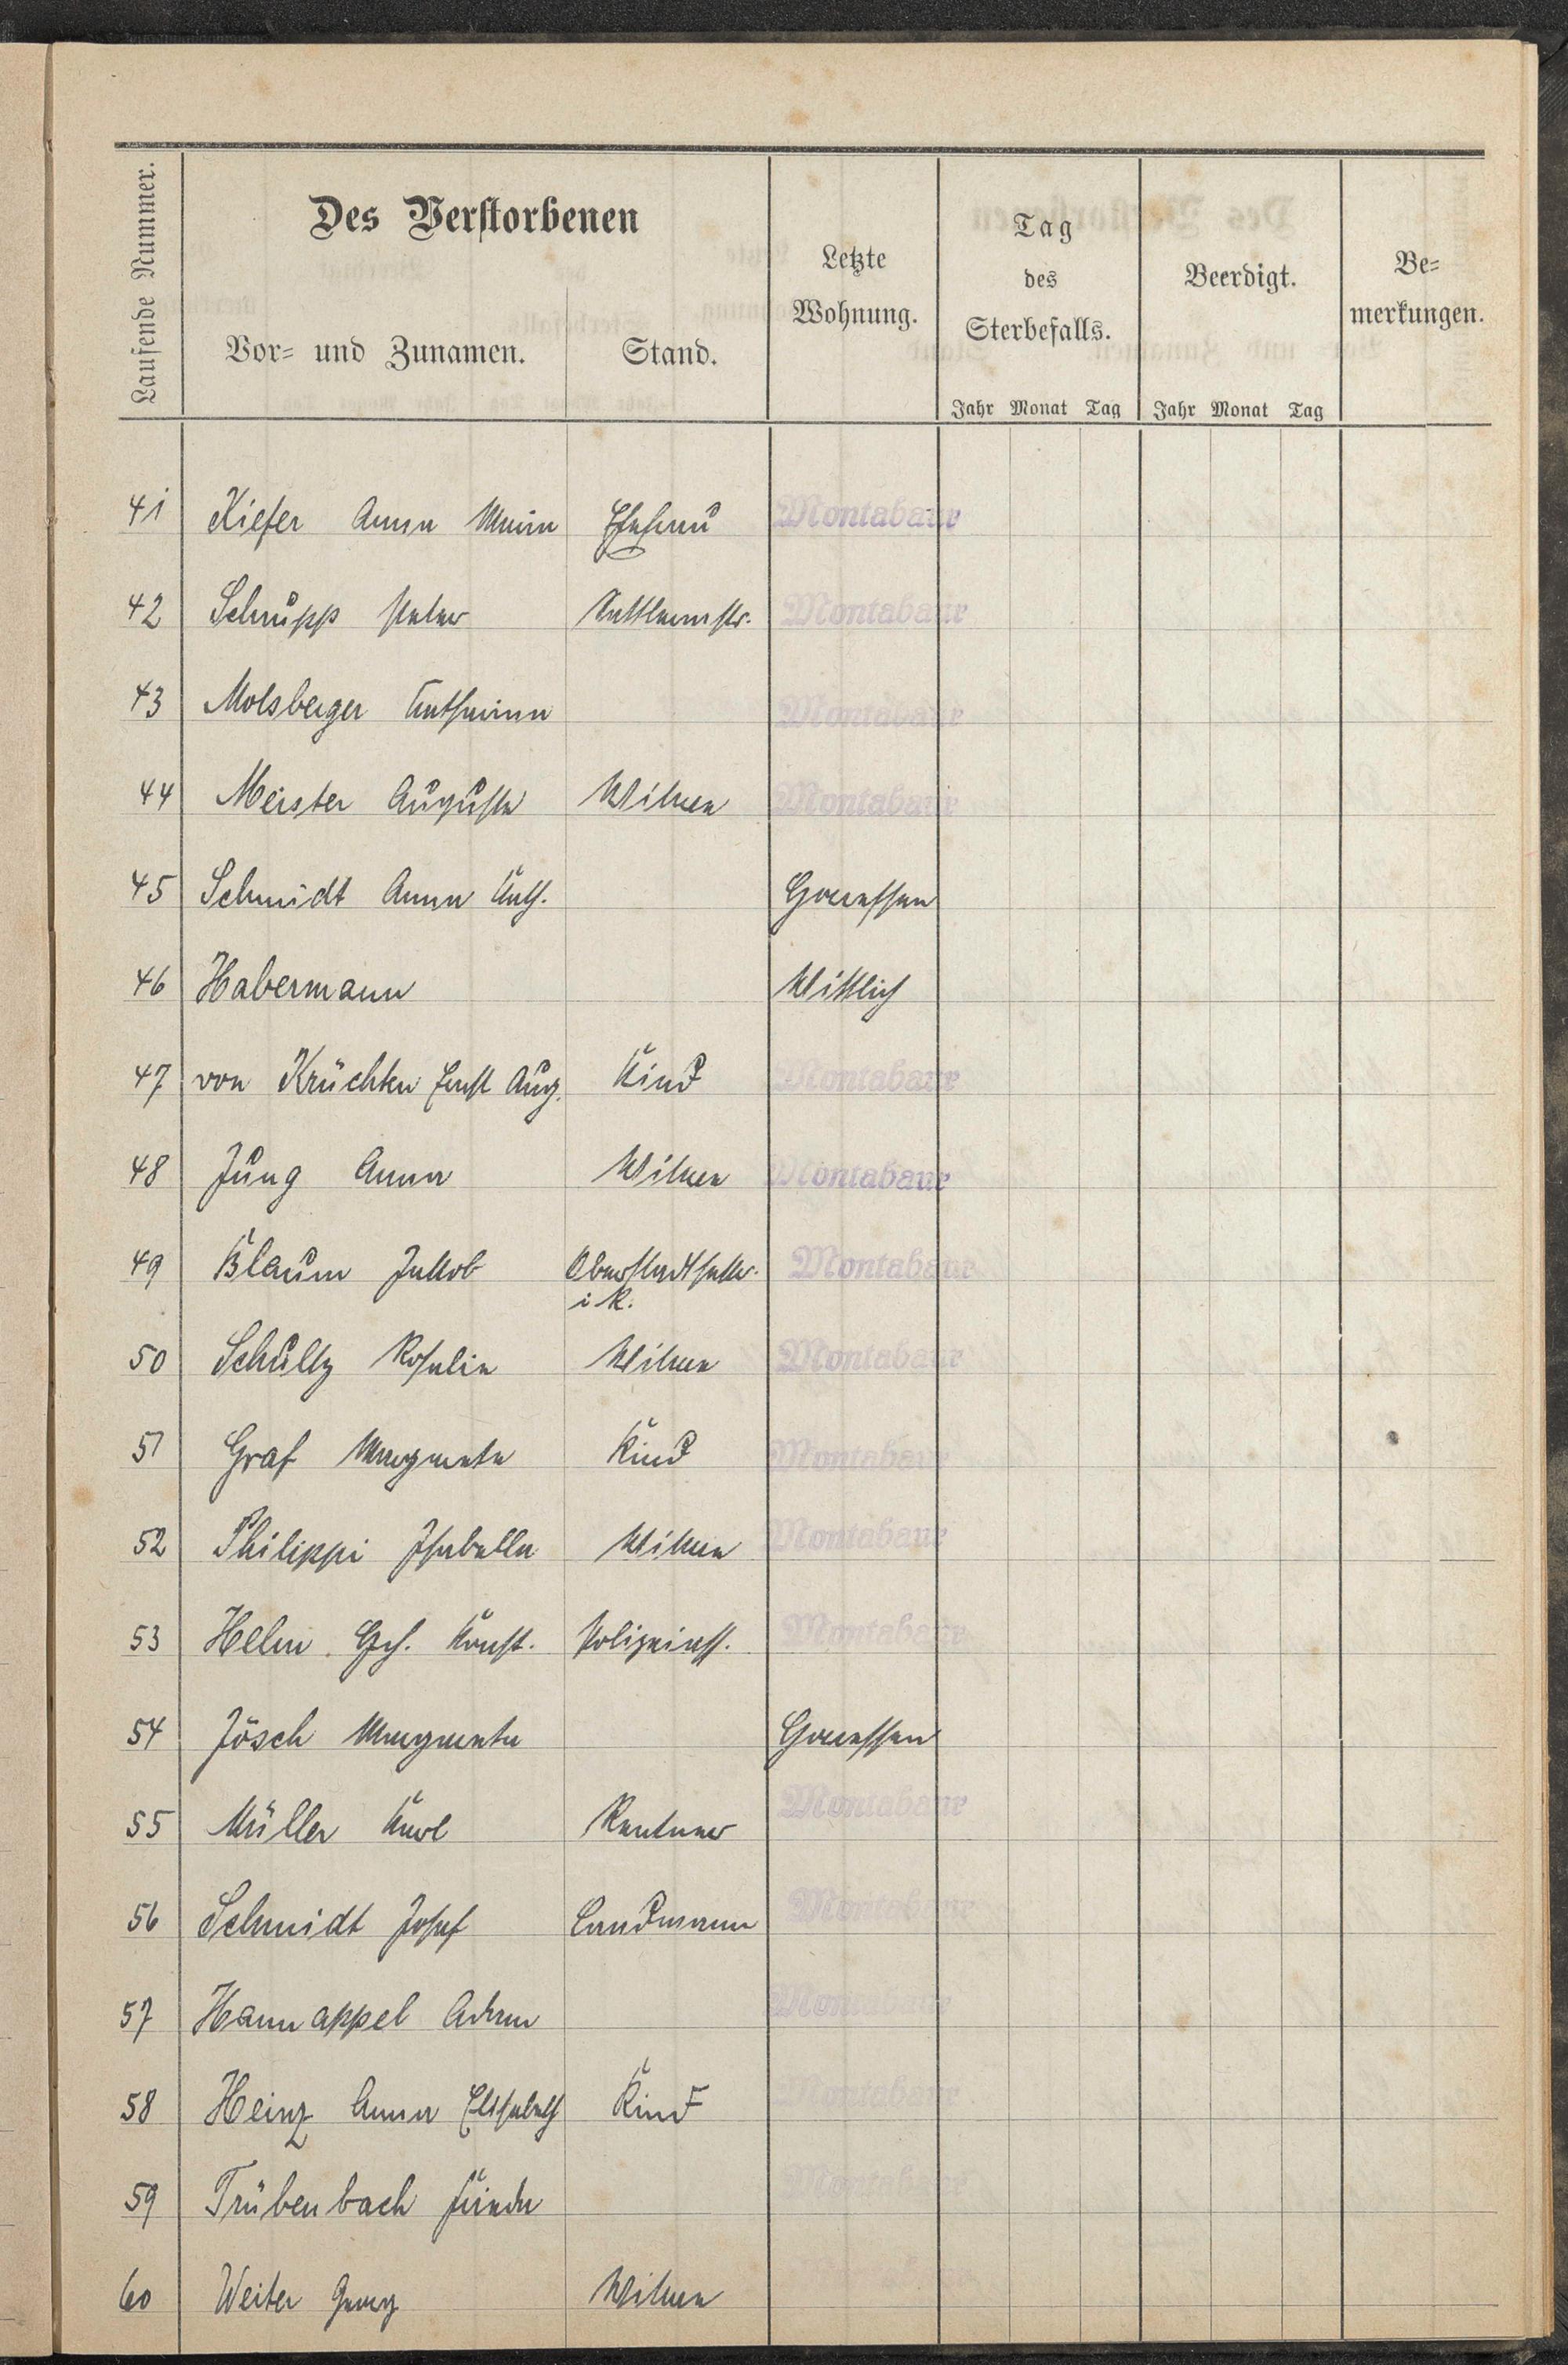 Laufende Nummer.
Des Verstorbenen
Vor= und Zunamen.
Stand.
Letzte
Wohnung.
Tag
des
Sterbefalls.
Jahr Monat Tag
Beerdigt.
Jahr Monat Tag
Be=
merkungen.
41 Kiefer Anna Maria Ehefrau Montabaur
42 Schrupp Peter Sattlermstr. Montabaur
43 Molsberger Katharina Montabaur
44 Meister Auguste Witwe Montabaur
45 Schmidt Anna Kath. Goershausen
46 Habermann Wittlich
47 von Krüchten Ernst Aug. Kind Montabaur
48 Jung Anna Witwe Montabaur
49 Blaum Jakob Montabaur
i R.
50 Schultz Rosalie Witwe Montabaur
51 Graf Margareta Kind Montabaur
52 Philippi Isabella Witwe Montabaur
53 Helm Konst. Polizeiass. Montabaur
54 Jösch Margareta
55 Müller Karl Rentner Montabaur
56 Schmidt Josef Landmann Montabaur
57 Hannappel Adam Montabaur
58 Heinz Anna Elisabeth Kind Montabaur
59 Trübenbach Montabaur
60 Weiter Georg Witwe